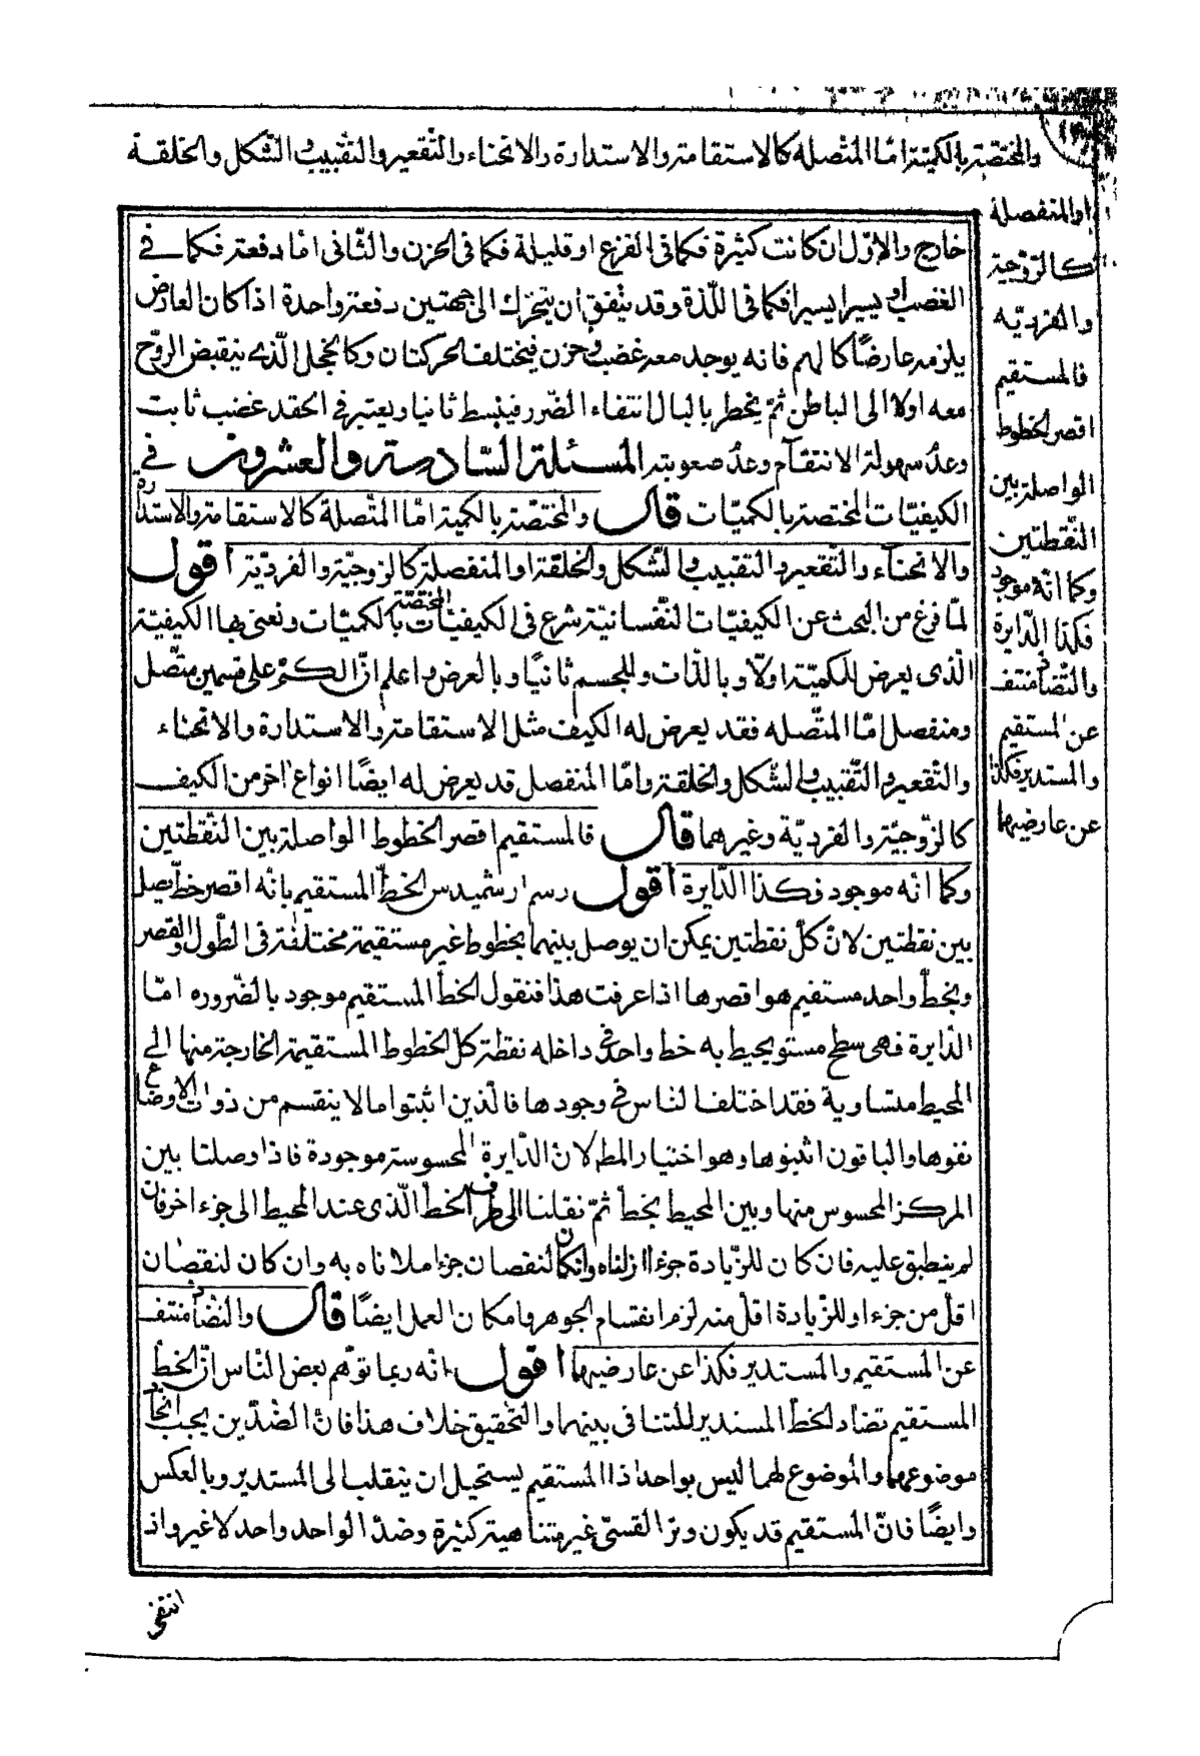 والمختصة بالكمية امّا المتّصله كالاستقامة والاستدارة والانحناء والتّقعير والتقبيب والشّكل والخلقة
او المنفصلة
كالزّوجيّة
والفرديّه
فالمستقيم
اقصر الخطوط
الواصلة بين
النّقطتين
وكما انّه موجود
فكذا الدّايرة
والتّضاد منتف
عن المستقيم
والمستدير فكذا
عن عارضيهما
خارج والاوّل ان كانت كثيرة فكما فى الفزع او قليلة فكما فى الحزن والثّانى امّا دفعة فكما في
الغضب او يسيرا يسيرا فكما فى اللّذة وقد يتّفق ان يتحرّك الى جهتين دفعة واحدة اذا كان العارض
يلزمه عارضًا كالهم فانه يوجد معه غضب وحزن فيختلف الحركتان وكالخجل الّذى ينقبض الروّح
معه اولا الى الباطن ثمّ يخطر بالبال انتفاء الضّرر فينبسط ثانيا ويعتبر في الحقد غضب ثابت
وعدم سهولة الانتقام وعدم صعوبته المسئلة السّادسة والعشرون في
الكيفيّات المختصة بالكميّات قال والمختصّة بالكمية امّا المتّصلة كالاستقامة والاستدارة
والانحناء والتّقعير والتقبيب والشّكل والخلقة او المنفصلة كالزوجيّة والفرديّة اقول
لمّا فرغ من البحث عن الكيفيّات النّفسانيّة شرع فى الكيفيّات المختصّة بالكميّات ونعنى بها الكيفيّة
الّذى يعرض للكميّة اولّا وبالذّات وللجسم ثانيًا وبالعرض واعلم انّ الكمّ على قسمين متّصل
ومنفصل امّا المتّصله فقد يعرض له الكيف مثل الاستقامة والاستدارة والانحناء
والتّقعير والتّقبيب والشّكل والخلقة وامّا المنفصل قد يعرض له ايضًا انواع اخر من الكيف
كالزّوجيّة والفرديّة وغيرهما قال فالمستقيم اقصر الخطوط الواصلة بين النقطتين
وكما انه موجود فكذا الدّايرة اقول رسم ارشميدس الخطّ المستقيم بانّه اقصر خطّ يصل
بين نقطتين لانّ كلّ نقطتين يمكن ان يوصل بينهما بخطوط غير مستقيمة مختلفة فى الطّول والقصر
وبخطّ واحد مستقيم هو اقصرها اذا عرفت هذا فنقول الخطّ المستقيم موجود بالضّروره امّا
الدّايرة فهى سطح مستو يحيط به خط واحد في داخله نقطة كلّ الخطوط المستقيمة الخارجة منها الى
المحيط متساوية فقد اختلف النّاس في وجودها فالّذين اثبتوا ما لا ينقسم من ذوات الاوضاع
نفوها والباقون اثبتوها وهو اختيار المط لانّ الدّايرة المحسوسة موجودة فاذا وصلنا بين
المركز المحسوس منها وبين المحيط بخطّ ثمّ نقلنا الى طرف الخطّ الّذى عند المحيط الى جزء اخر فان
لم ينطبق عليه فان كان للزّيادة جزءا ازلناه وان كان لنقصان جزء املاناه به وان كان لنقصان
اقلّ من جزء او للزّيادة اقلّ منه لزم انقسام الجوهر وامكان العمل ايضًا قال والتّضاد منتف
عن المستقيم والمستدير فكذا عن عارضيهما اقول انّه ربما توهّم بعض النّاس انّ الخطّ
المستقيم تضاد الخطّ المستدير للتنافى بينهما والتّحقيق خلاف هذا فانّ الضّدّين يجب اتّحاد
موضوعهما والموضوع لهما ليس بواحد اذ المستقيم يستحيل ان ينقلب الى المستدير وبالعكس
وايضًا فانّ المستقيم قد يكون وترا لقسىّ غير متناهية كثيرة وضدّ الواحد واحد لا غير واذ
انتفى